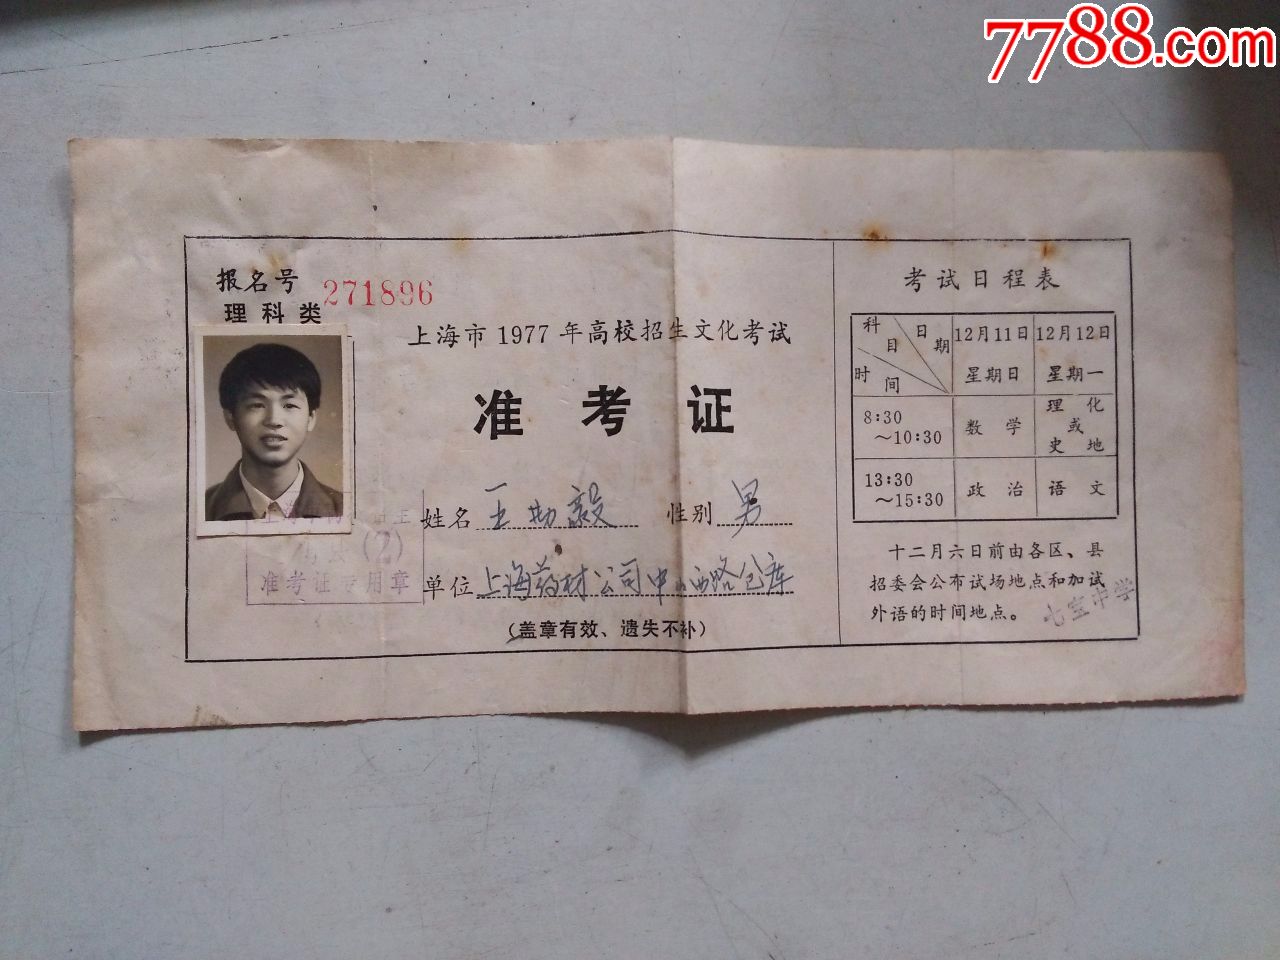 7788.com
报名号 271896
理科类
上海市1977年高校招生文化考试
准考证
姓名 王勤毅 性别 男
单位 上海药材公司中山西路仓库
(盖章有效、遗失不补)
(2)
准考证专用章
考试日程表
科目 日期 时间 12月11日 星期日 12月12日 星期一
8:30～10:30 数学 理化或史地
13:30～15:30 政治 语文
十二月六日前由各区、县
招委会公布试场地点和加试
外语的时间地点。
七宝中学